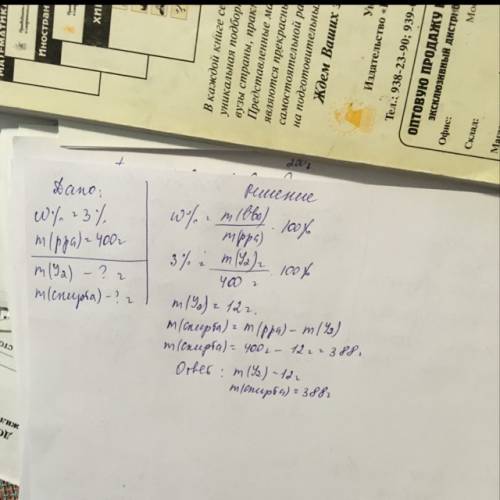 МАТЕМАТИКА
Иностран
ХИМ
В каждой книге се
уникальная подбор
вузы страны, прак
Представленные ма
являются прекрасны
самостоятельной ра
на подготовительны
Ждем Ваших з
Издательство «
Тел.: 938-23-90; 939-
ОПТОВУЮ ПРОДАЖУ
ЭКСКЛЮЗИВНЫЙ ДИСТРИБ
Офис:
Склад:
200г
Дано:
w% = 3%
m(рра) = 400г
m(У2) - ? г
m(спирта) - ? г
Решение
w% = m(вво) / m(рра) · 100%
3% = m(У2)г / 400 г · 100%
m(У2) = 12 г.
m(спирта) = m(рра) - m(У2)
m(спирта) = 400г - 12г = 388г
Ответ: m(У2) - 12г
m(спирта) = 388г